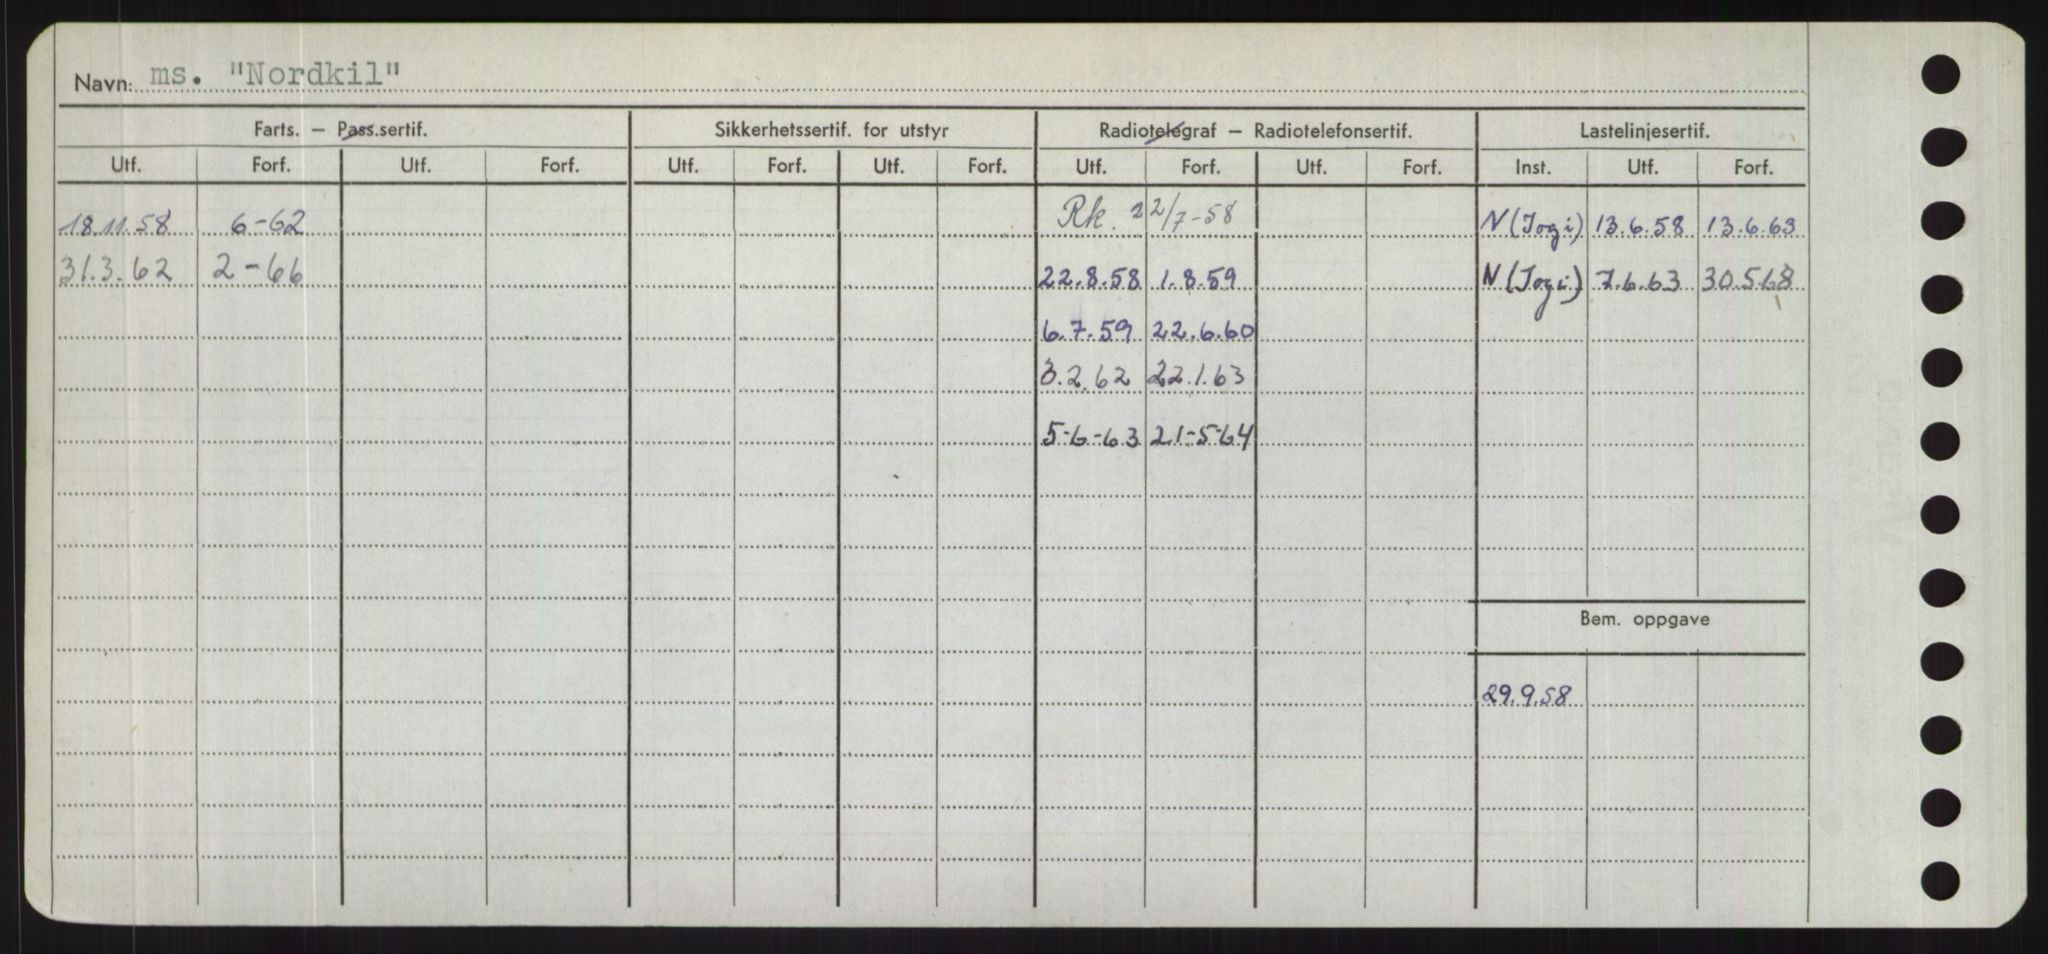 Navn: ms. "Nordkil"
Farts. – Pass.sertif. Sikkerhetssertif. for utstyr Radiotelegraf – Radiotelefonsertif. Lastelinjesertif.
Utf. Forf. Utf. Forf. Utf. Forf. Utf. Forf. Utf. Forf. Utf. Forf. Inst. Utf. Forf.
18.11.58 6-62 Rk. 22/7-58 N (Jogi) 13.6.58 13.6.63
31.3.62 2-66 22.8.58 1.8.59 N (Jogi) 7.6.63 30.5.68
6.7.59 22.6.60
3.2.62 22.1.63
5-6-63 21-5-64
Bem. oppgave
29.9.58